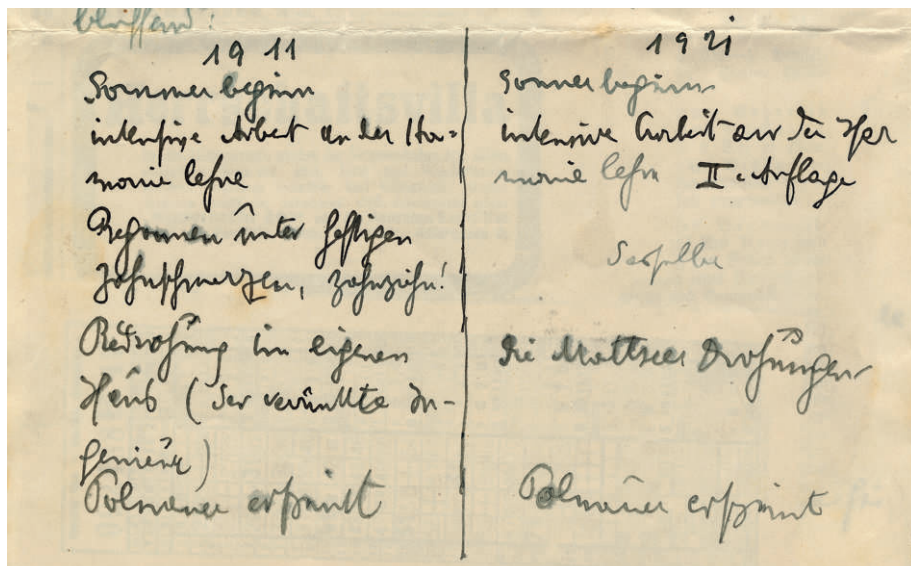 bleiffend:
1911
Sommerbeginn
intensive Arbeit an der Har=
monielehre
Begonnen unter heftigen
Zahnschmerzen, Zahnziehn!
Bedrohung im eigenen
Haus (der verrückte In-
genieur)
Polnauer erscheint
1921
Sommerbeginn
intensive Arbeit an der Har
monielehre II. Auflage
Dasselbe
Die Mattseer Drohungen
Polnauer erscheint